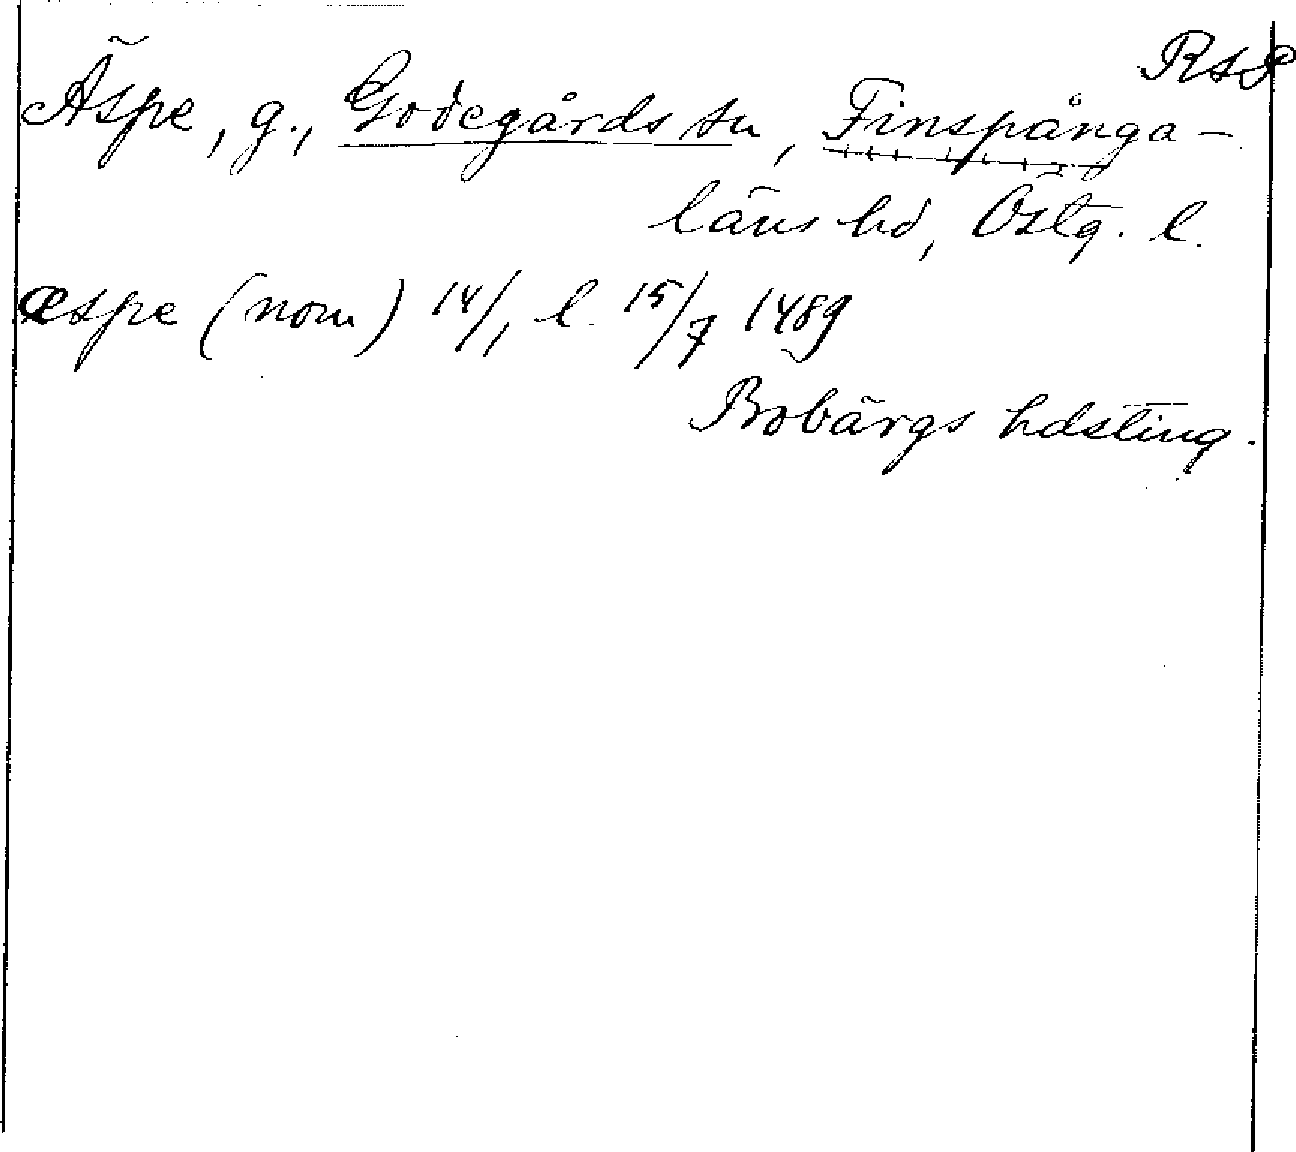 RAP
Äspe, g., Godegårds sn, Finspånga-
läns hd, Östg. l.
æspe (nom) 14/1 l. 15/7 1489
Bobärgs hdsting.